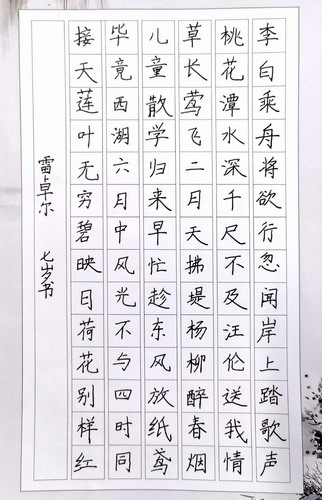 李白乘舟将欲行忽闻岸上踏歌声
桃花潭水深千尺不及汪伦送我情
草长莺飞二月天拂堤杨柳醉春烟
儿童散学归来早忙趁东风放纸鸢
毕竟西湖六月中风光不与四时同
接天莲叶无穷碧映日荷花别样红
雷卓尔 七岁书